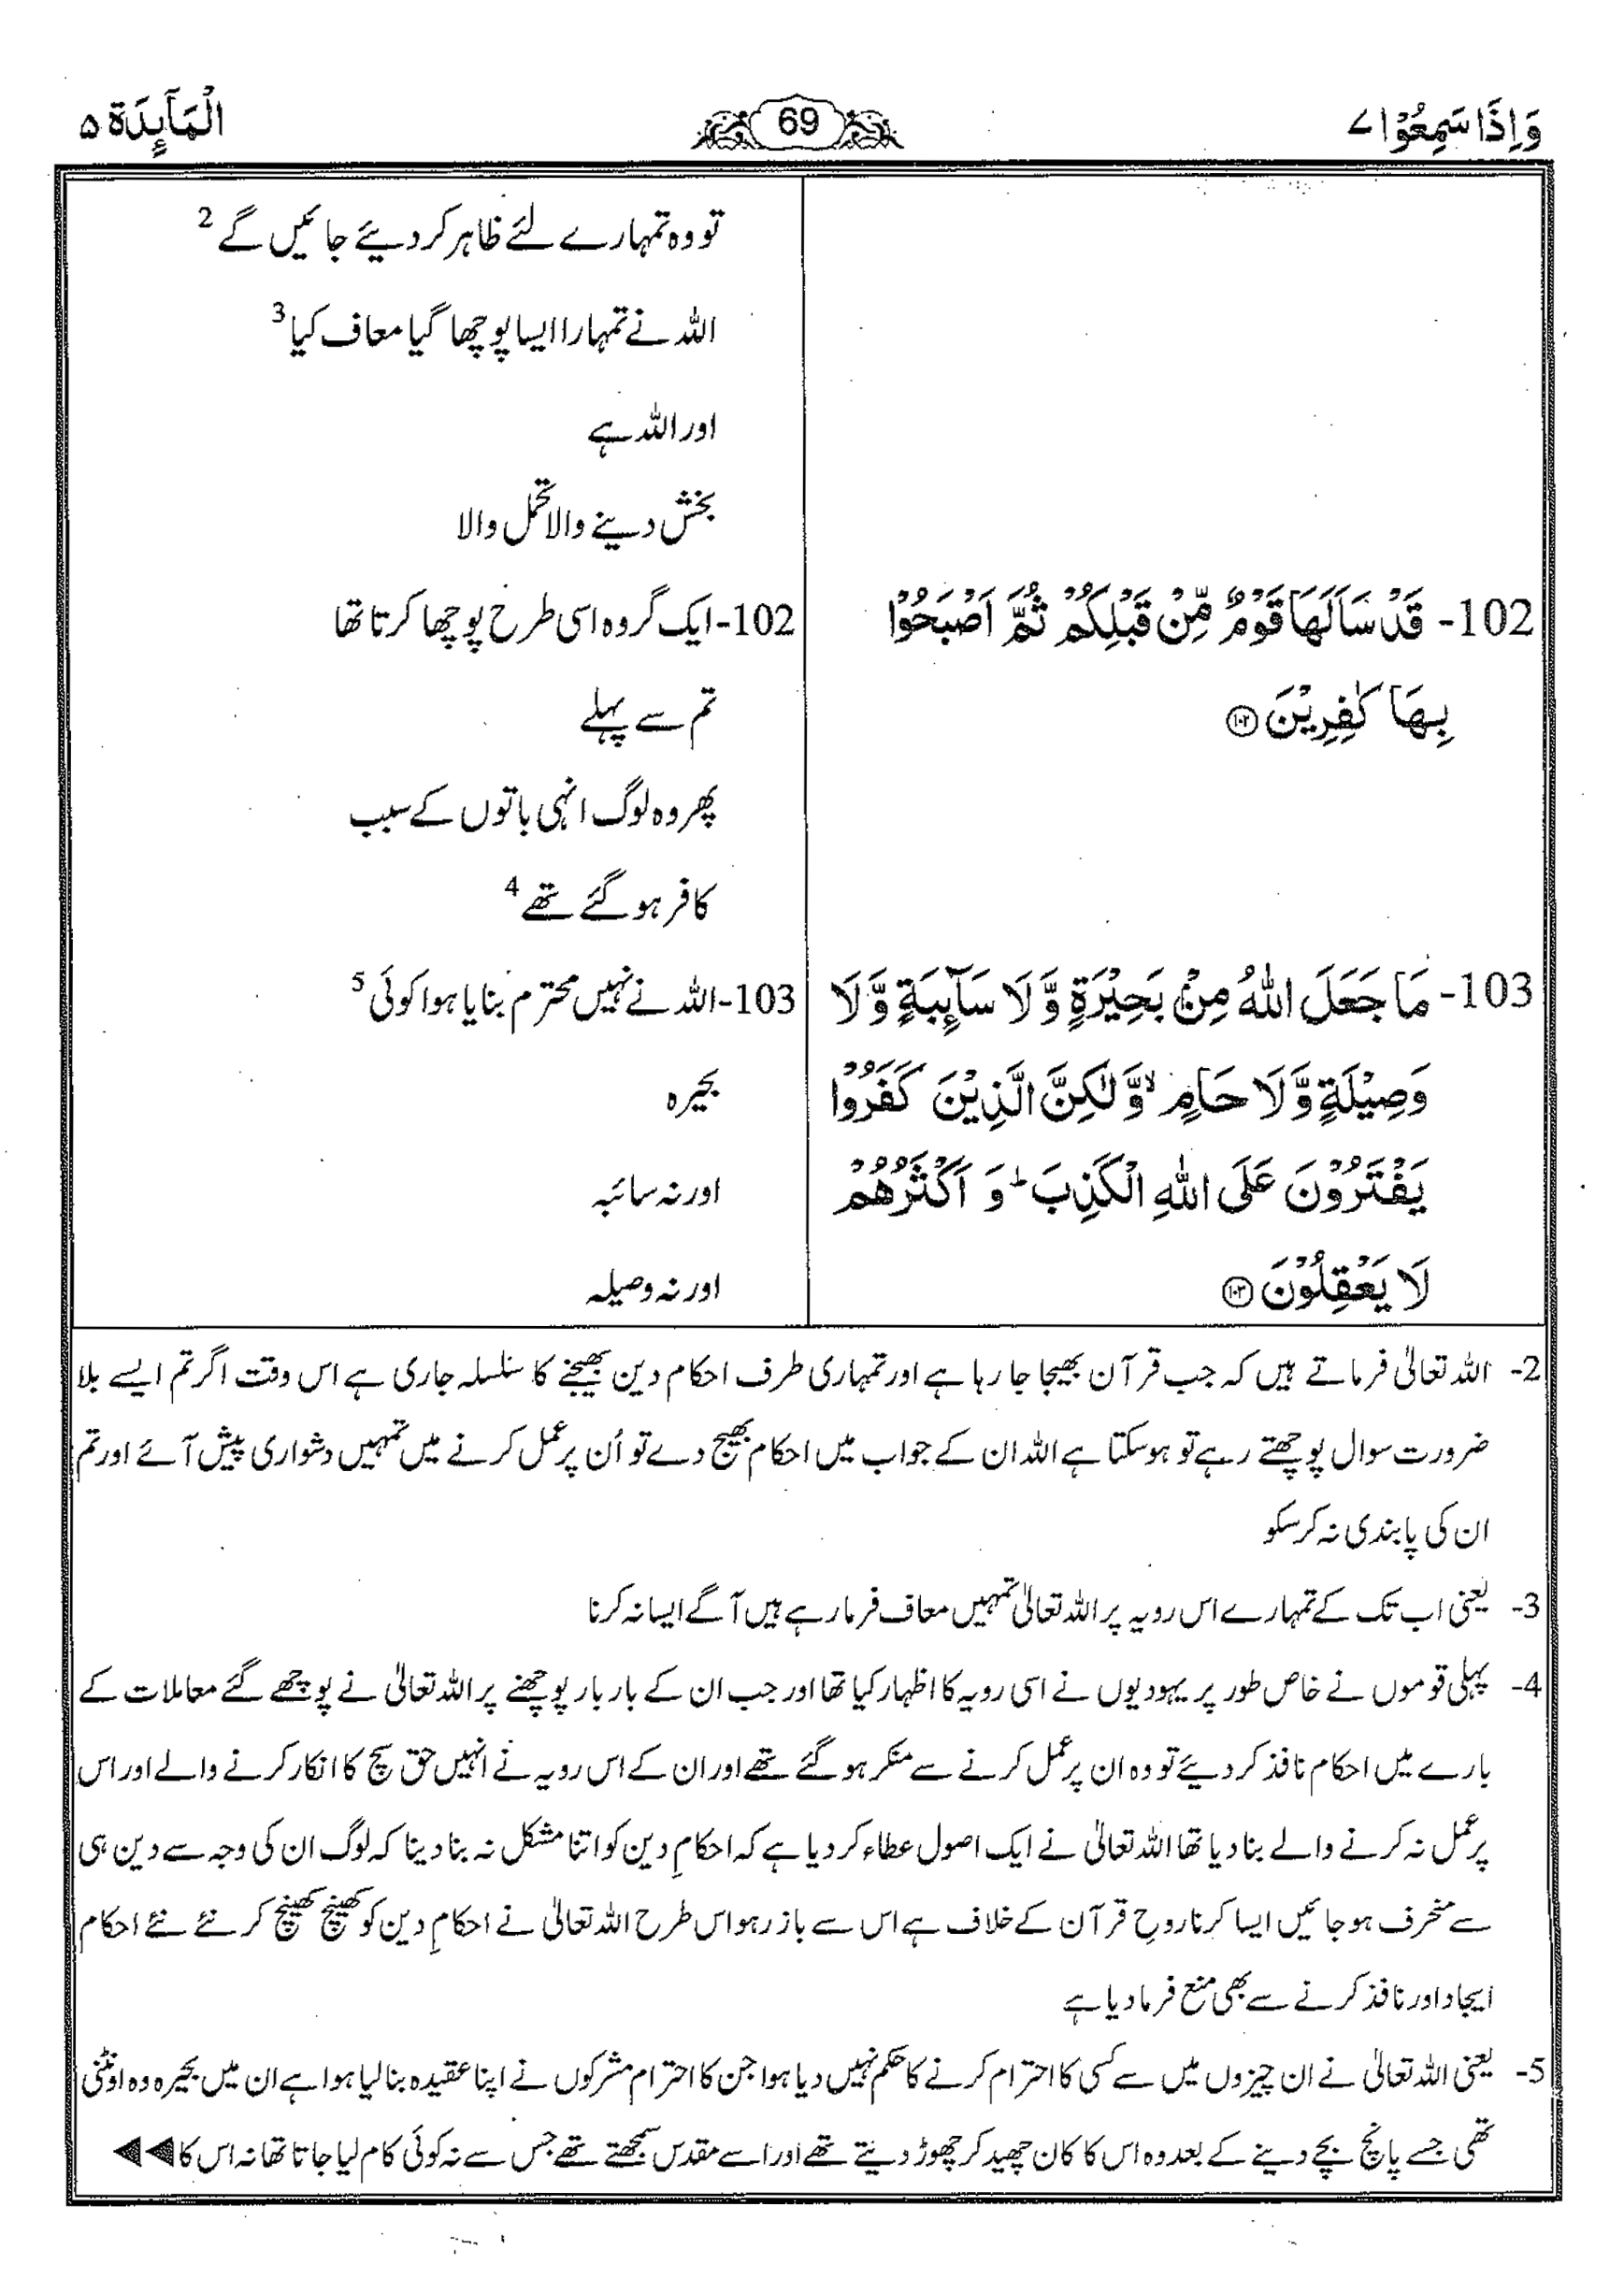 وَاِذَا سَمِعُوْا ٧
69
الْمَآىِٕدَة ۵
تو وہ تمہارے لئے ظاہر کر دیئے جائیں گے 2
اللہ نے تمہارا ایسا پوچھا گیا معاف کیا 3
اور اللہ ہے
بخش دینے والا تحمل والا
102- قَدْ سَاَلَهَا قَوْمٌ مِّنْ قَبْلِكُمْ ثُمَّ اَصْبَحُوْا
بِهَا كٰفِرِيْنَ ۝۱۰۲
102-ایک گروہ اسی طرح پوچھا کرتا تھا
تم سے پہلے
پھر وہ لوگ انہی باتوں کے سبب
کافر ہو گئے تھے 4
103- مَا جَعَلَ اللّٰهُ مِنْۢ بَحِيْرَةٍ وَّلَا سَآىِٕبَةٍ وَّلَا
وَصِيْلَةٍ وَّلَا حَامٍ ۙ وَّلٰكِنَّ الَّذِيْنَ كَفَرُوْا
يَفْتَرُوْنَ عَلَى اللّٰهِ الْكَذِبَ ؕ وَ اَكْثَرُهُمْ
لَا يَعْقِلُوْنَ ۝۱۰۳
103-اللہ نے نہیں محترم بنایا ہوا کوئی 5
بحیرہ
اور نہ سائبہ
اور نہ وصیلہ
2- اللہ تعالیٰ فرماتے ہیں کہ جب قرآن بھیجا جا رہا ہے اور تمہاری طرف احکام دین بھیجنے کا سلسلہ جاری ہے اس وقت اگر تم ایسے بلا
ضرورت سوال پوچھتے رہے تو ہو سکتا ہے اللہ ان کے جواب میں احکام بھیج دے تو اُن پر عمل کرنے میں تمہیں دشواری پیش آئے اور تم
ان کی پابندی نہ کر سکو
3- یعنی اب تک کے تمہارے اس رویہ پر اللہ تعالیٰ تمہیں معاف فرما رہے ہیں آگے ایسا نہ کرنا
4- پہلی قوموں نے خاص طور پر یہودیوں نے اسی رویہ کا اظہار کیا تھا اور جب ان کے بار بار پوچھنے پر اللہ تعالیٰ نے پوچھے گئے معاملات کے
بارے میں احکام نافذ کر دیئے تو وہ ان پر عمل کرنے سے منکر ہو گئے تھے اور ان کے اس رویہ نے انہیں حق سچ کا انکار کرنے والے اور اس
پر عمل نہ کرنے والے بنا دیا تھا اللہ تعالیٰ نے ایک اصول عطاء کر دیا ہے کہ احکامِ دین کو اتنا مشکل نہ بنا دینا کہ لوگ ان کی وجہ سے دین ہی
سے منحرف ہو جائیں ایسا کرنا روحِ قرآن کے خلاف ہے اس سے باز رہو اس طرح اللہ تعالیٰ نے احکامِ دین کو کھینچ کھینچ کر نئے نئے احکام
ایجاد اور نافذ کرنے سے بھی منع فرما دیا ہے
5- یعنی اللہ تعالیٰ نے ان چیزوں میں سے کسی کا احترام کرنے کا حکم نہیں دیا ہوا جن کا احترام مشرکوں نے اپنا عقیدہ بنا لیا ہوا ہے ان میں بحیرہ وہ اونٹنی
تھی جسے پانچ بچے دینے کے بعد وہ اس کا کان چھید کر چھوڑ دیتے تھے اور اسے مقدس سمجھتے تھے جس سے نہ کوئی کام لیا جاتا تھا نہ اس کا ◀◀